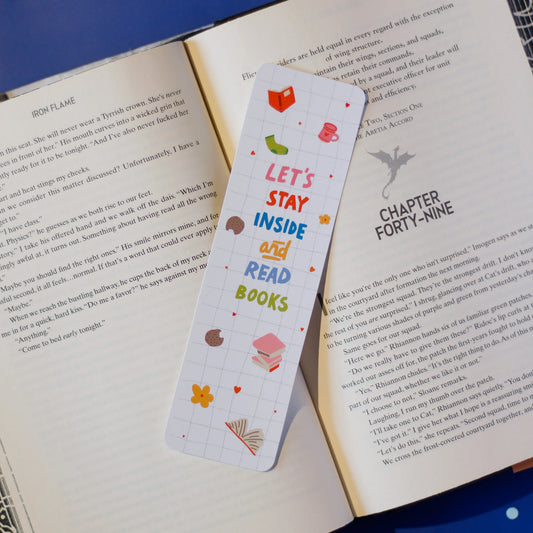 IRON FLAME
this seat. She will never wear a Tyrrish crown. She's never
ees in front of her." His mouth curves into a wicked grin that
ntly ready for it to be tonight. "And I've also never fucked her
urt and heat stings my cheeks.
n we consider this matter discussed? Unfortunately, I have a
"I have class."
Physics?" he guesses as we both rise to our feet.
tory." I take his offered hand and we walk off the dais. "Which I'm
ingly awful at, it turns out. Something about having read all the wrong
"Maybe you should find the right ones." His smile mirrors mine, and for
second, it all feels...normal. If that's a word that could ever apply to
"Maybe."
When we reach the bustling hallway, he cups the back of my neck a
me in for a quick, hard kiss. "Do me a favor?" he says against my m
"Anything."
"Come to bed early tonight."
LET'S
STAY
INSIDE
and
READ
BOOKS
riders are held equal in every regard with the exception
of wing structure.
maintain their wings, sections, and squads,
retain their commands.
by a squad, and their leader will
executive officer for unit
and efficiency.
Two, Section One
Aretia Accord
CHAPTER
FORTY-NINE
feel like you're the only one who isn't surprised," Imogen says as we st
in the courtyard after formation the next morning.
"We're the strongest squad. They're the strongest drift. I don't know
the rest of you are surprised." I shrug, glancing over at Cat's drift, who
to be turning various shades of purple and green from yesterday's
Same goes for our squad.
"Here we go." Rhiannon hands six of us familiar green patches.
"Do we really have to give them these?" Ridoc's lip curls at
worked our asses off for, the patch the first-years fought to hold
"Yes," Rhiannon chides. "It's the right thing to do. As of this
part of our squad, whether we like it or not."
"I choose to not." Sloane remarks.
Laughing, I run my thumb over the patch.
"I'll take one to Cat," Rhiannon says quietly. "You don't
"I've got it." I give her what I hope is a reassuring smile
"Let's do this," she repeats. "Second squad, time to
We cross the frost-covered courtyard together, and